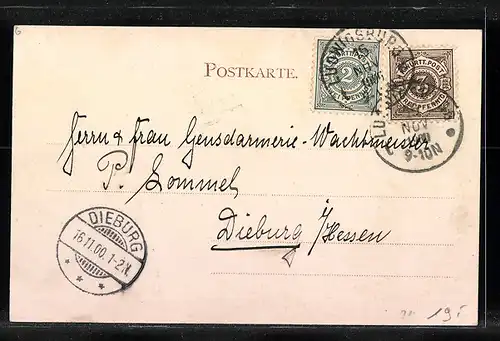 POSTKARTE.
LUDWIGSBURG
2
K. WÜRTT. POST
3
NOV
9-10N
Herrn & Frau Gensdarmerie-Wachtmeister
P. Lommel
Dieburg i/Hessen
DIEBURG
16.11.00.1-2N.
19